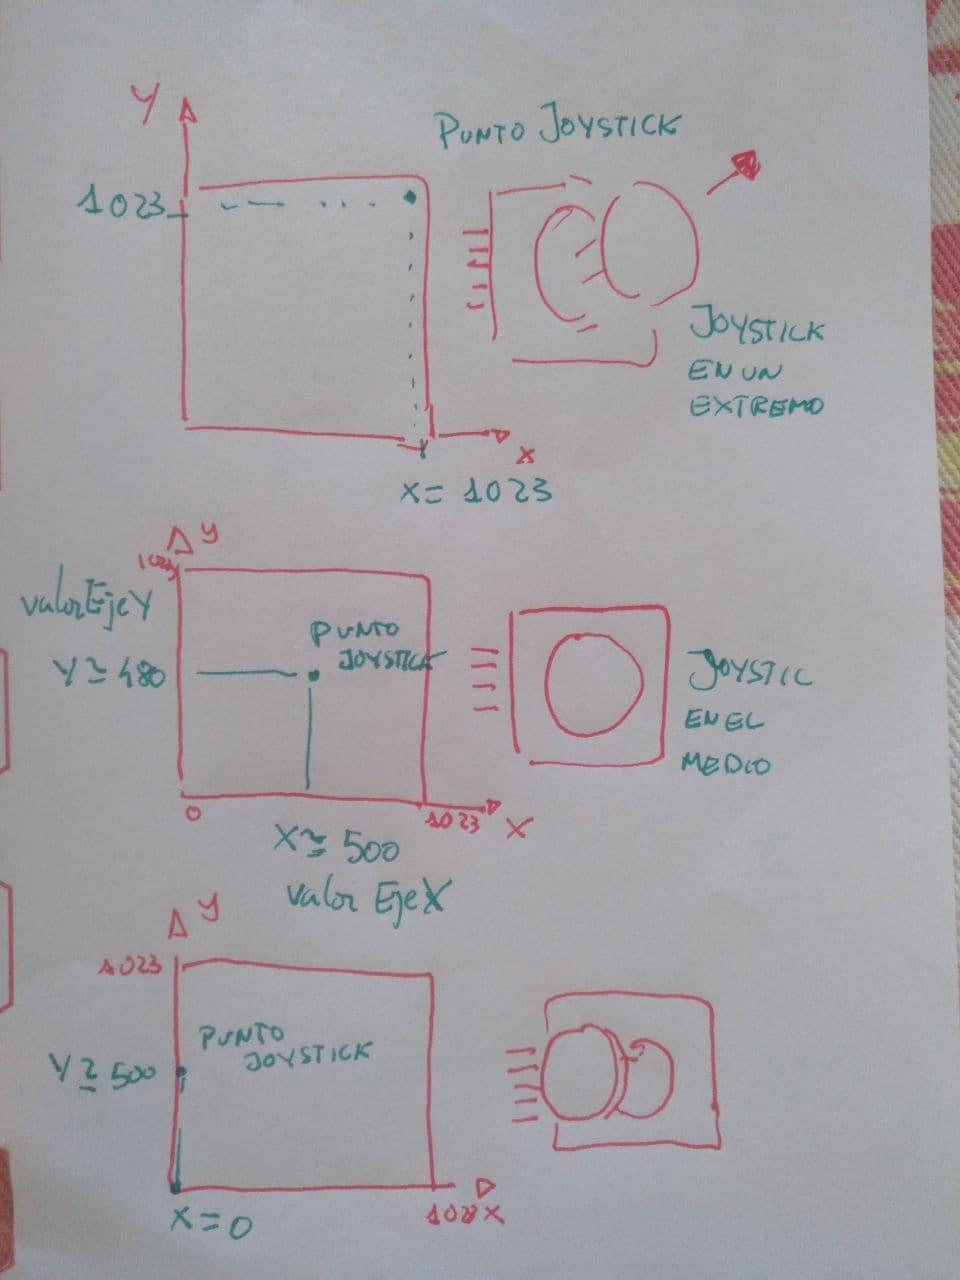 Y
PUNTO JOYSTICK
1023
JOYSTICK
EN UN
EXTREMO
X
X= 1023
y
1023
valorEjeY
PUNTO
JOYSTICK
Y≃480
JOYSTIC
EN EL
MEDIO
0
1023
X
X≃500
valor EjeX
y
1023
PUNTO
JOYSTICK
Y≃500
X
X=0